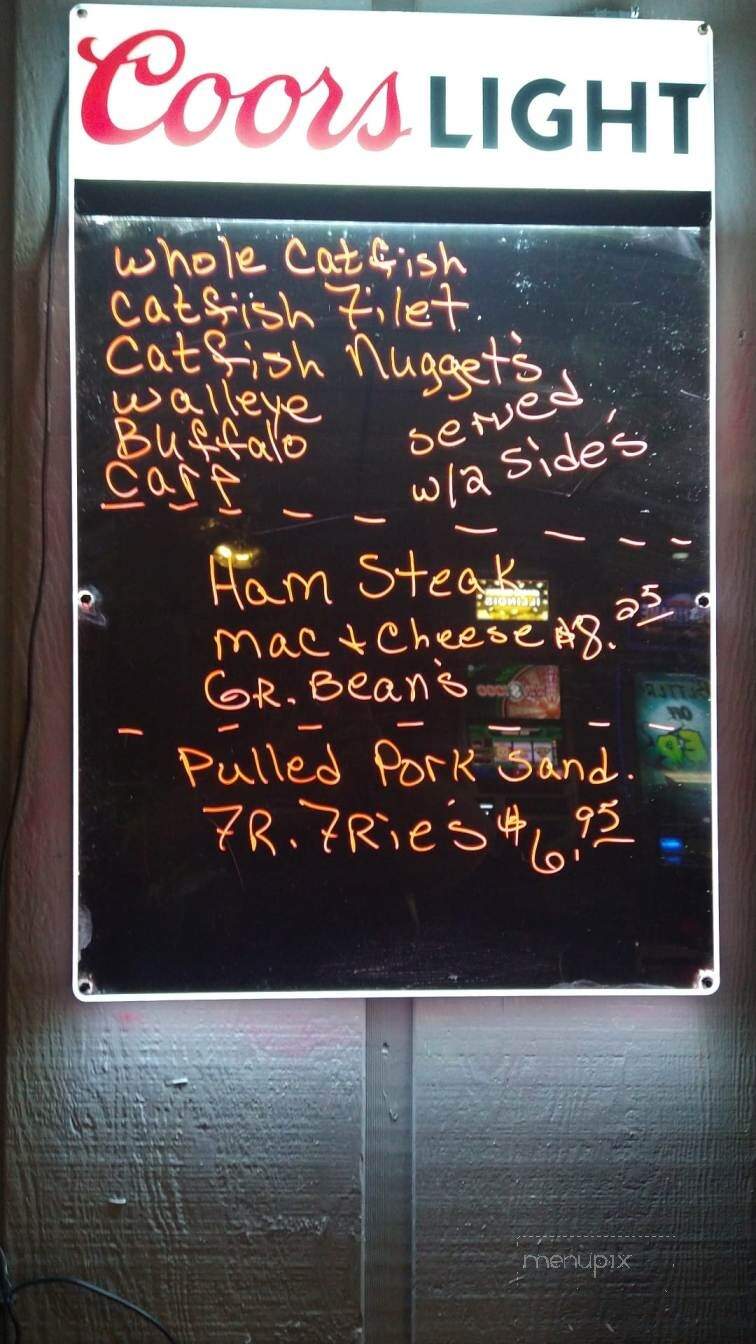 Coors LIGHT
whole Catfish
Catfish Filet
Catfish Nugget's
walleye
Buffalo served
Carp w/2 Side's
Ham Steak
mac + Cheese $8.25
GR. Bean's
Pulled Pork Sand.
FR. FRie's $6.95
ILLINOIS
menupix